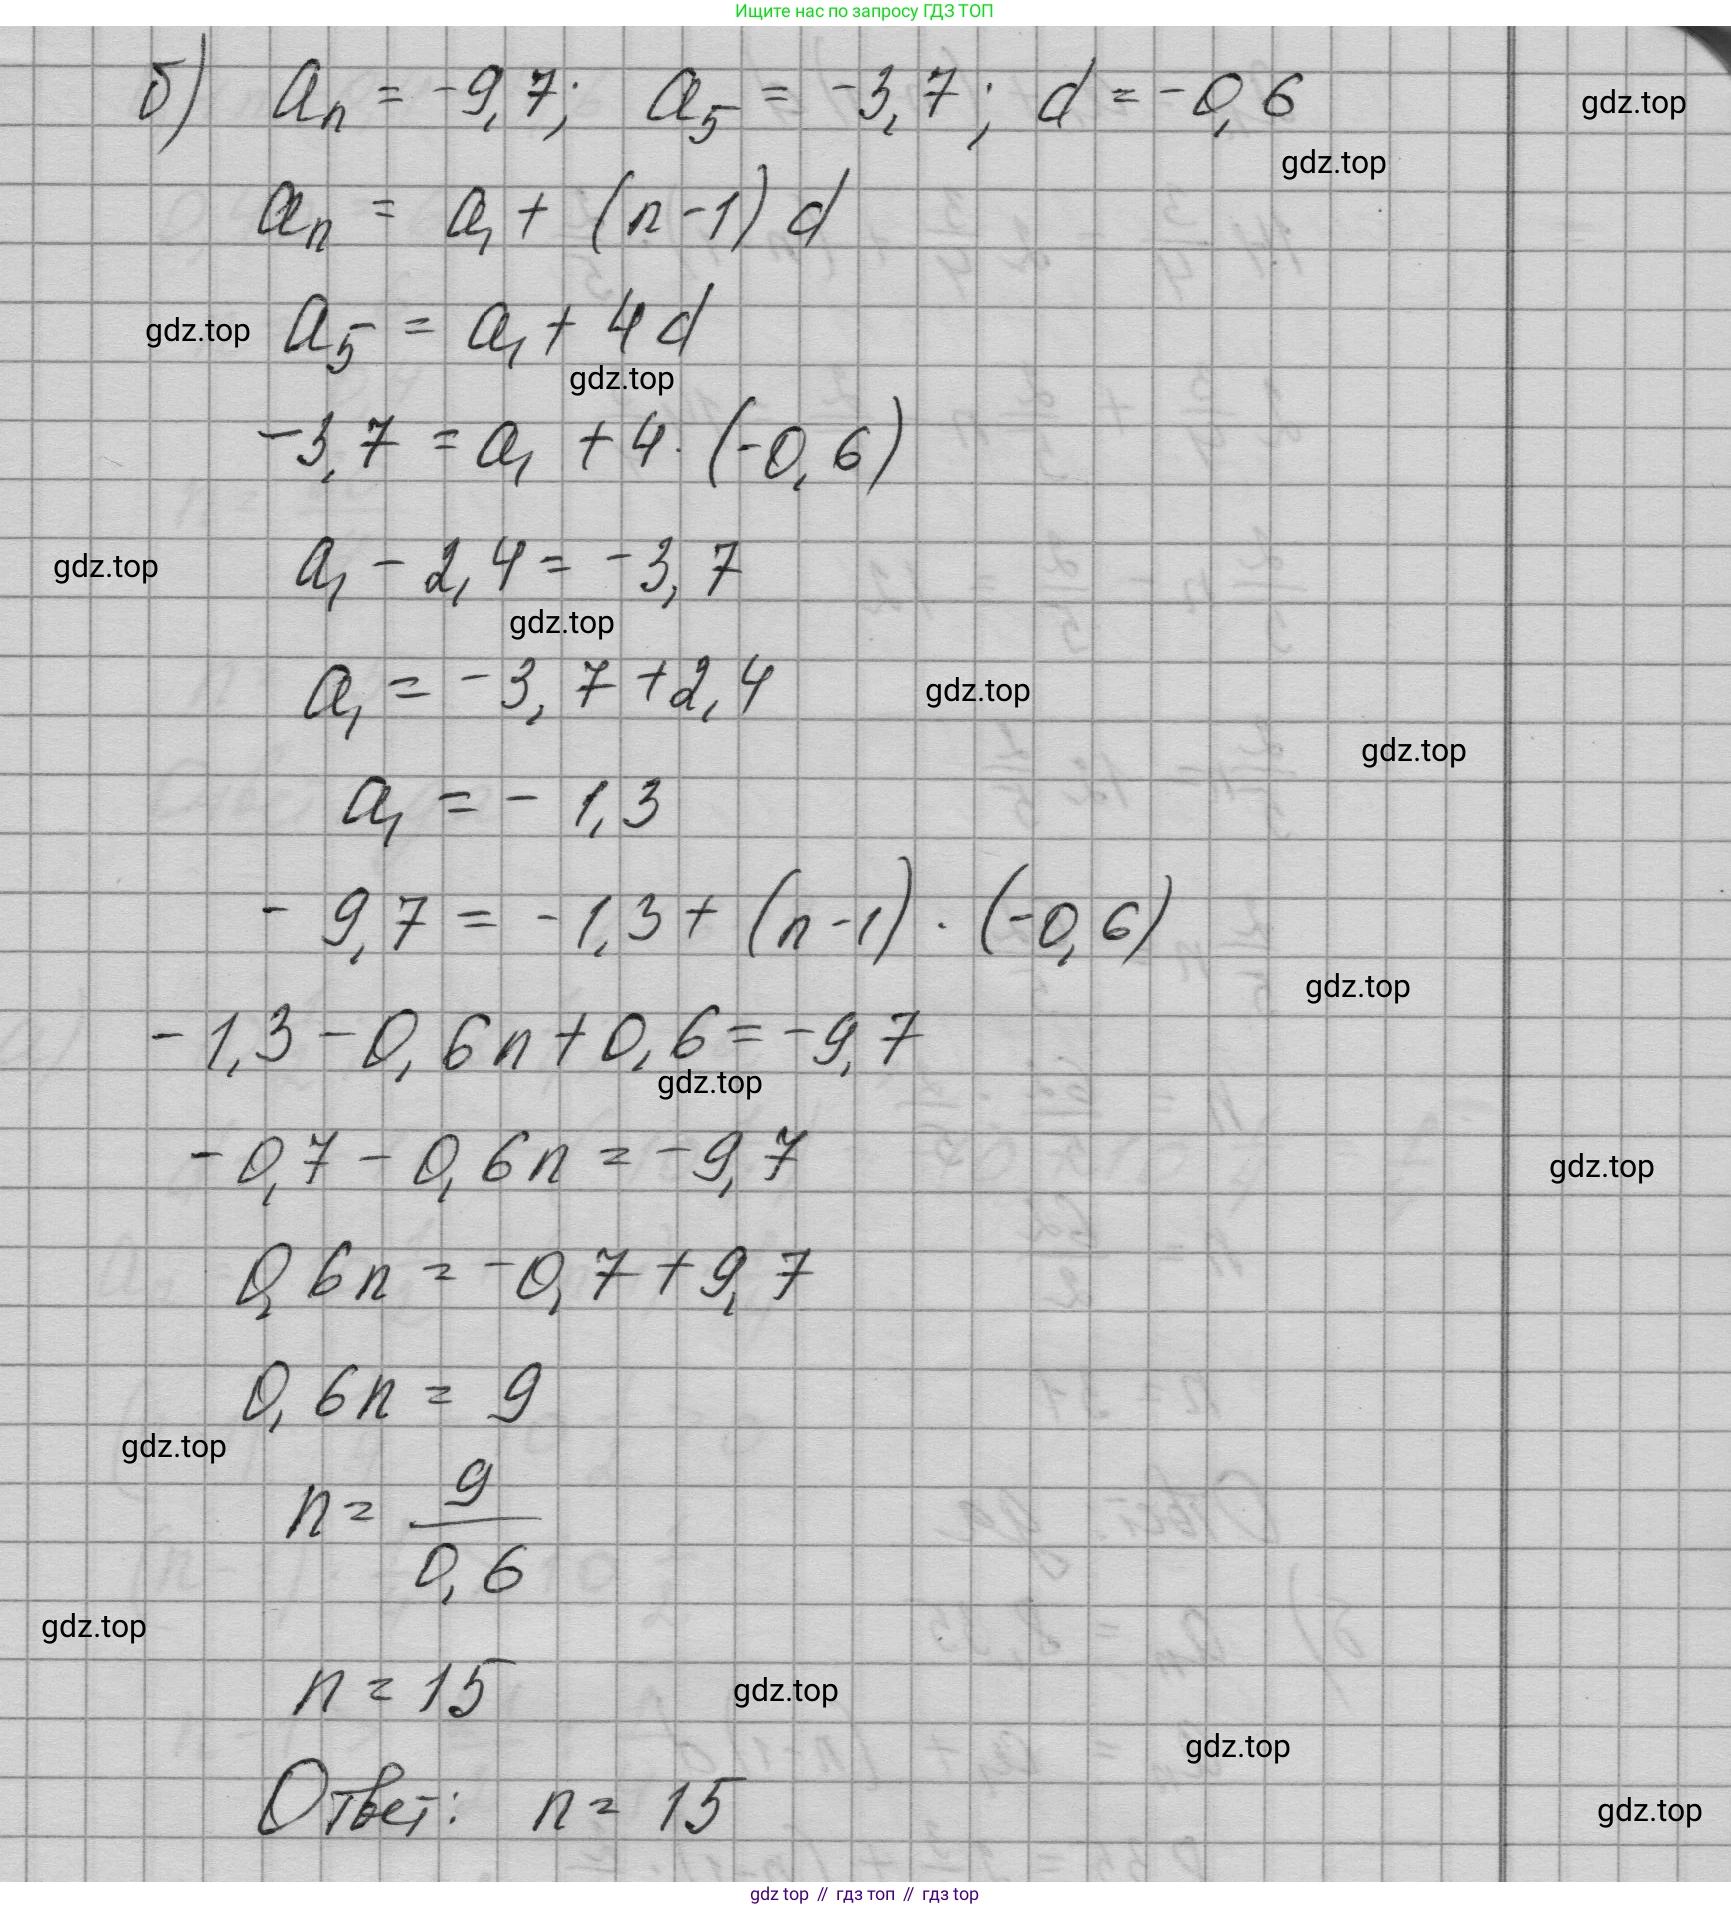 Ищите нас по запросу ГДЗ ТОП
б) aₙ = -9,7; a₅ = -3,7; d = -0,6
gdz.top
gdz.top
aₙ = a₁ + (n-1) d
gdz.top
a₅ = a₁ + 4d
gdz.top
-3,7 = a₁ + 4 · (-0,6)
gdz.top
a₁ - 2,4 = -3,7
gdz.top
a₁ = -3,7 + 2,4
gdz.top
gdz.top
a₁ = - 1,3
- 9,7 = -1,3 + (n-1) · (-0,6)
gdz.top
-1,3 - 0,6n + 0,6 = -9,7
gdz.top
-0,7 - 0,6n = -9,7
gdz.top
0,6n = -0,7 + 9,7
0,6n = 9
gdz.top
n = 9/0,6
gdz.top
n = 15
gdz.top
gdz.top
Ответ: n = 15
gdz.top
gdz top // гдз топ // гдз top